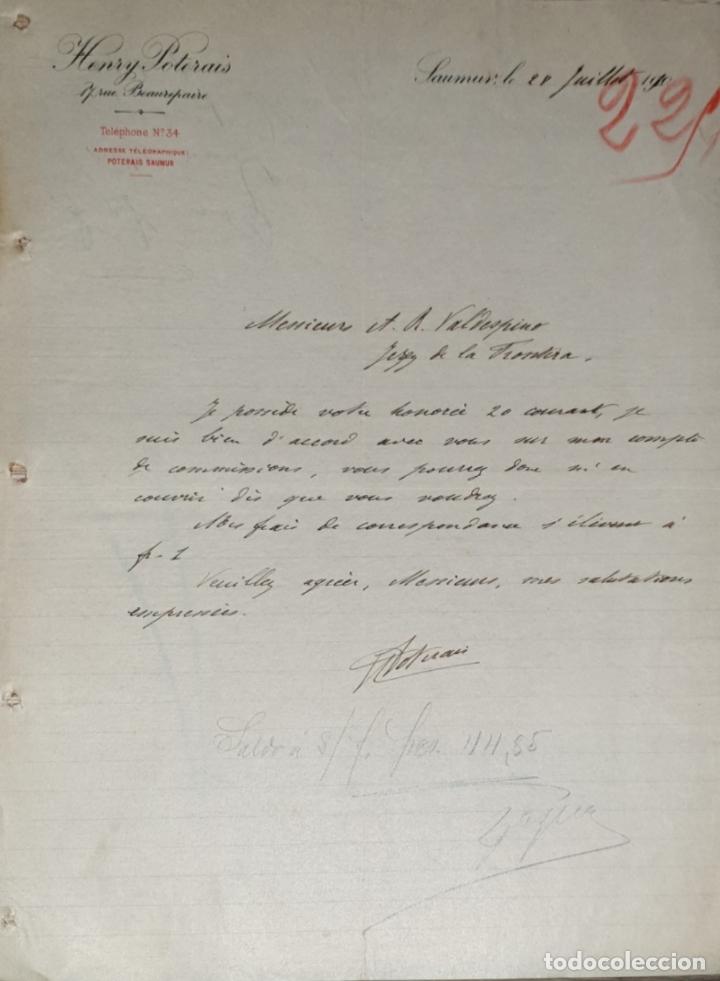 Henry Poterais
17, rue Beaurepaire
Téléphone Nº 34
ADRESSE TÉLÉGRAPHIQUE
POTERAIS SAUMUR
Saumur, le 28 Juillet 190
22
Messieurs A. R. Valdespino
Jerez de la Frontera.
Je possède votre honorée 20 courant, je
suis bien d'accord avec vous sur mon compte
de commissions, vous pourrez donc m'en
couvrir dès que vous voudrez.
Mes frais de correspondance s'élèvent à
fr. 1
Veuillez agréer, Messieurs, mes salutations
empressées.
HPoterais
Saldo á s/f. frcs. 44,55
todocoleccion
todocoleccion.net